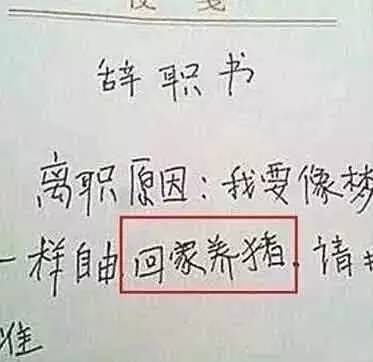 辞职书
离职原因:我要像梦
一样自由回家养猪.请
准